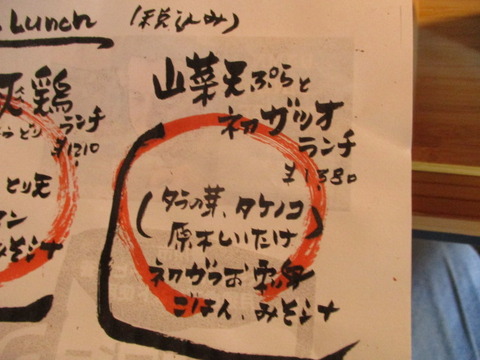 Lunch (税込み)
鶏
ランチ
¥1210
とり天
みそ汁
山菜天ぷらと
初ガツオ
ランチ
¥1,380
(タラの芽、タケノコ
原木しいたけ)
初ガツオ
ごはん、みそ汁